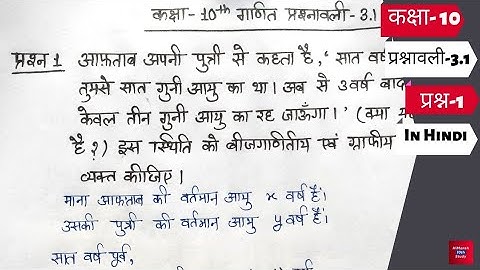 कक्षा-10th गणित प्रश्नावली-3.1
प्रश्न 1 आफ़ताब अपनी पुत्री से कहता है, 'सात वर्ष
तुमसे सात गुनी आयु का था। अब से 3 वर्ष बाद
केवल तीन गुनी आयु का रह जाऊँगा।' (क्या
है?) इस स्थिति को बीजगणितीय एवं ग्राफीय
व्यक्त कीजिए।
माना आफ़ताब की वर्तमान आयु x वर्ष है।
उसकी पुत्री की वर्तमान आयु y वर्ष है।
सात वर्ष पूर्व,
कक्षा-10
प्रश्नावली-3.1
प्रश्न-1
In Hindi
10th
Study